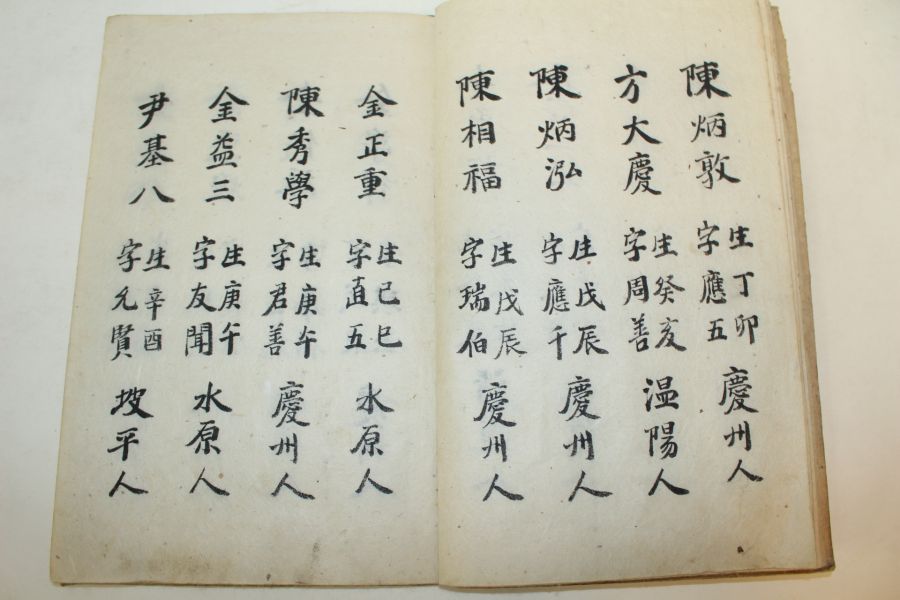 陳炳敦 生丁卯 字應五 慶州人
方大慶 生癸亥 字周善 溫陽人
陳炳泓 生戊辰 字應千 慶州人
陳相福 生戊辰 字瑞伯 慶州人
金正重 生己巳 字直五 水原人
陳秀學 生庚午 字君善 慶州人
金益三 生庚午 字友聞 水原人
尹基八 生辛酉 字允賢 坡平人